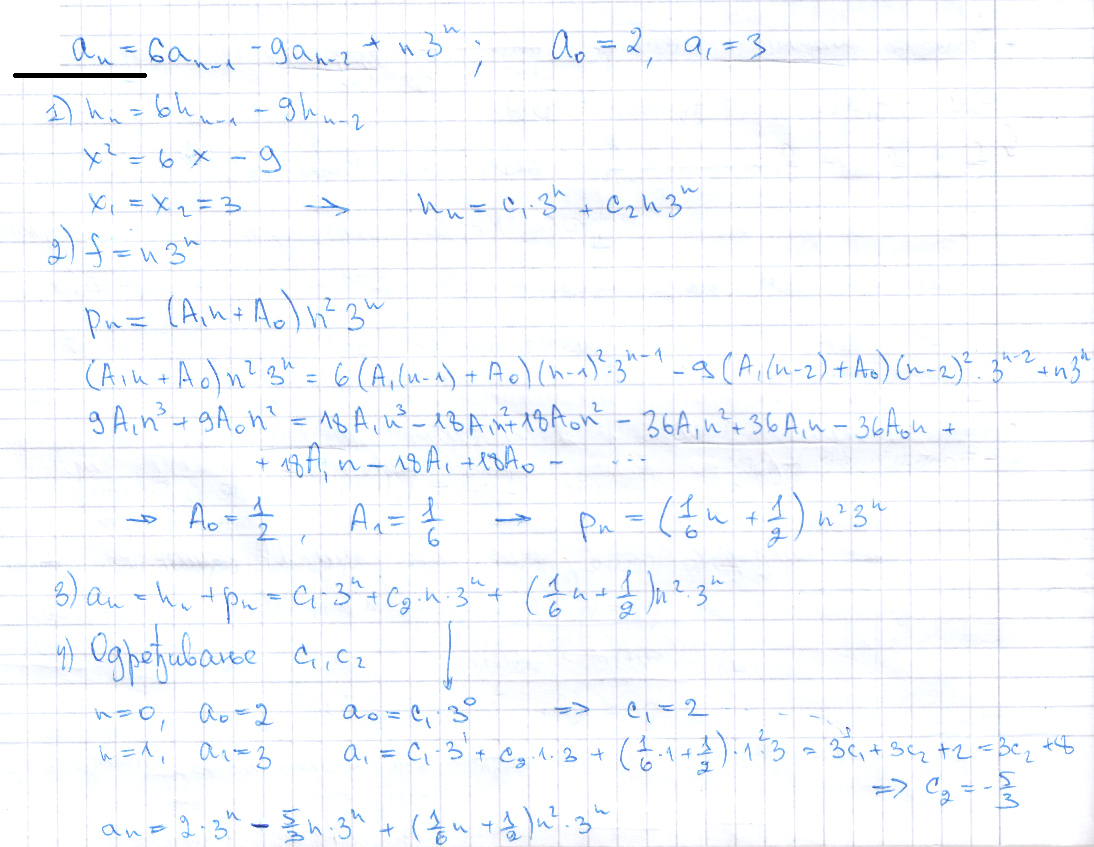 aₙ = 6aₙ₋₁ - 9aₙ₋₂ + n3ⁿ; a₀ = 2, a₁ = 3
1) hₙ = 6hₙ₋₁ - 9hₙ₋₂
x² = 6x - 9
x₁ = x₂ = 3 → hₙ = c₁·3ⁿ + c₂n3ⁿ
2) f = n3ⁿ
pₙ = (A₁n + A₀)n²3ⁿ
(A₁n + A₀)n²3ⁿ = 6(A₁(n-1) + A₀)(n-1)²·3ⁿ⁻¹ - 9(A₁(n-2) + A₀)(n-2)²·3ⁿ⁻² + n3ⁿ
9A₁n³ + 9A₀n² = 18A₁n³ - 18A₁n² + 18A₀n² - 36A₁n² + 36A₁n - 36A₀n +
+ 18A₁n - 18A₁ + 18A₀ - ...
→ A₀ = 1/2, A₁ = 1/6 → pₙ = (1/6 n + 1/2) n²3ⁿ
3) aₙ = hₙ + pₙ = c₁·3ⁿ + c₂·n·3ⁿ + (1/6 n + 1/2)n²·3ⁿ
4) Одређивање c₁, c₂
n=0, a₀=2 a₀ = c₁·3⁰ ⇒ c₁ = 2
n=1, a₁=3 a₁ = c₁·3¹ + c₂·1·3 + (1/6·1 + 1/2)·1²·3 = 3c₁ + 3c₂ + 2 = 3c₂ + 8
⇒ c₂ = -5/3
aₙ = 2·3ⁿ - 5/3 n·3ⁿ + (1/6 n + 1/2)n²·3ⁿ